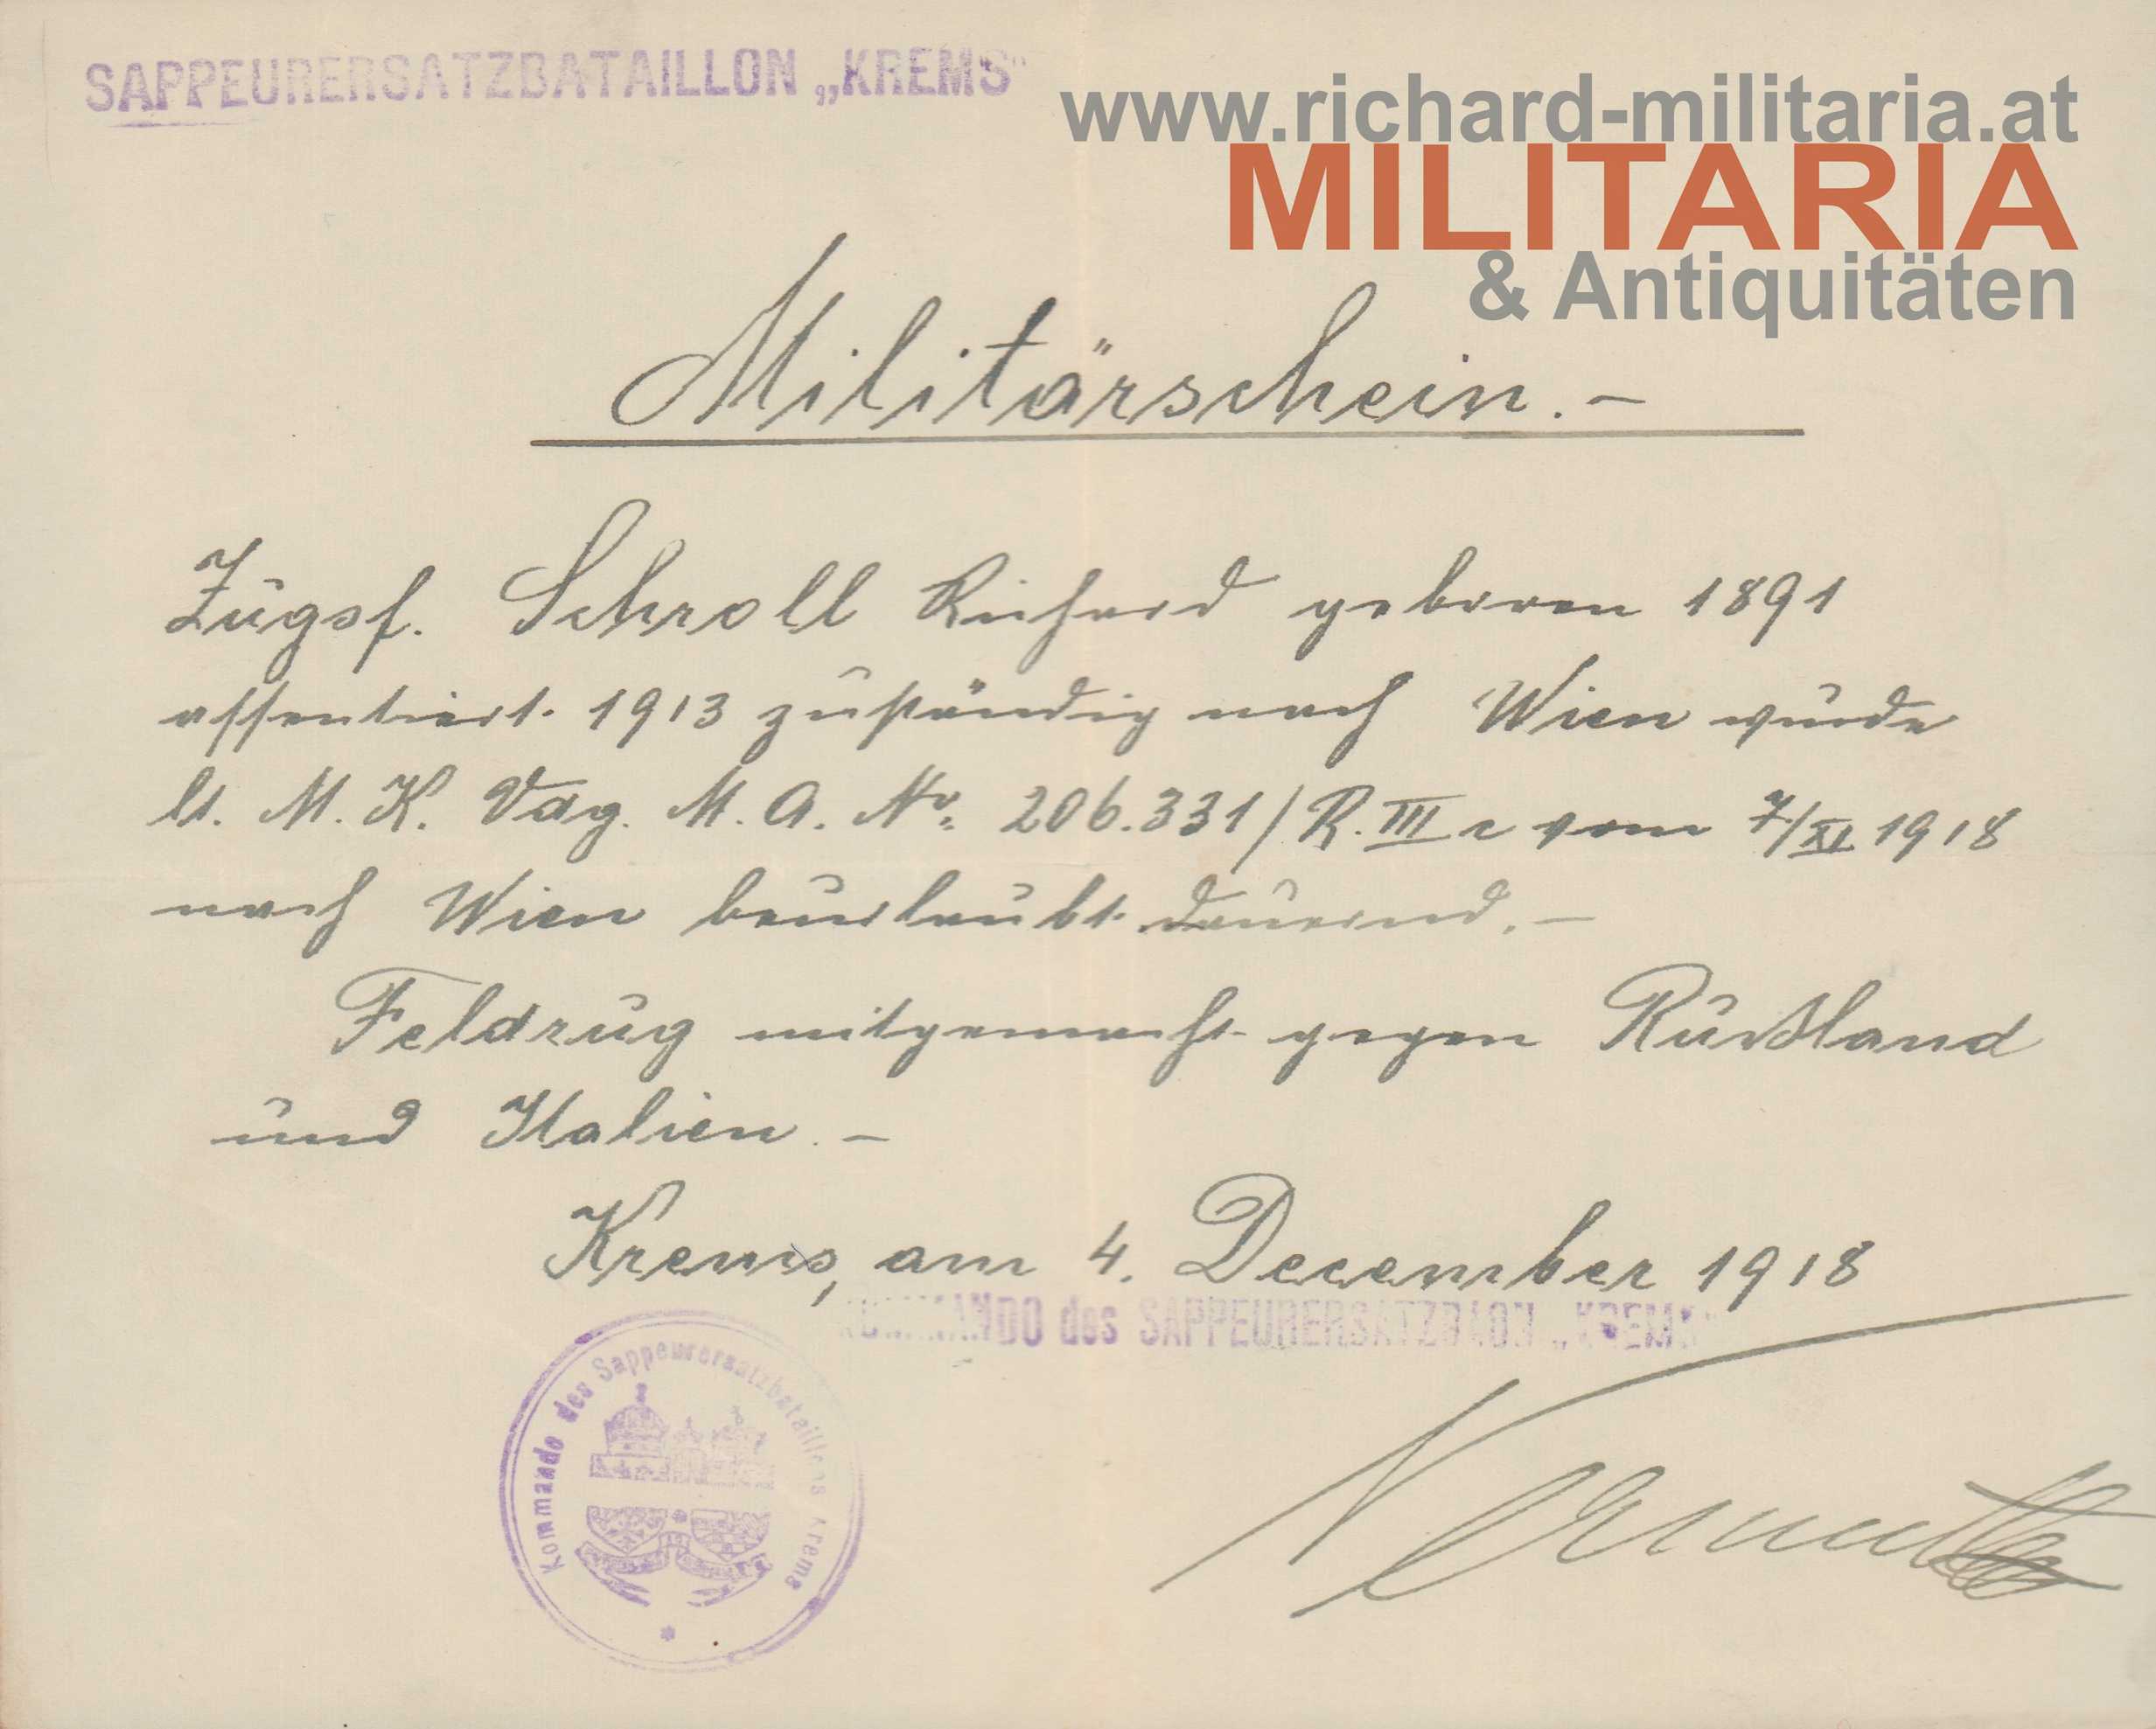 SAPPEURERSATZBATAILLON „KREMS"
www.richard-militaria.at
MILITARIA
& Antiquitäten
Militärschein.-
Zugsf. Schroll Richard geboren 1891
assentiert 1913 zuständig nach Wien wurde
lt. M. K. Vdg. M. A. No. 206.331/R. III c vom 7/XI 1918
nach Wien beurlaubt dauernd.-
Feldzug mitgemacht gegen Rußland
und Italien.-
Krems, am 4. December 1918
KOMMANDO des SAPPEURERSATZBAONS „KREMS"
Kommando des Sappeurersatzbataillons Krems